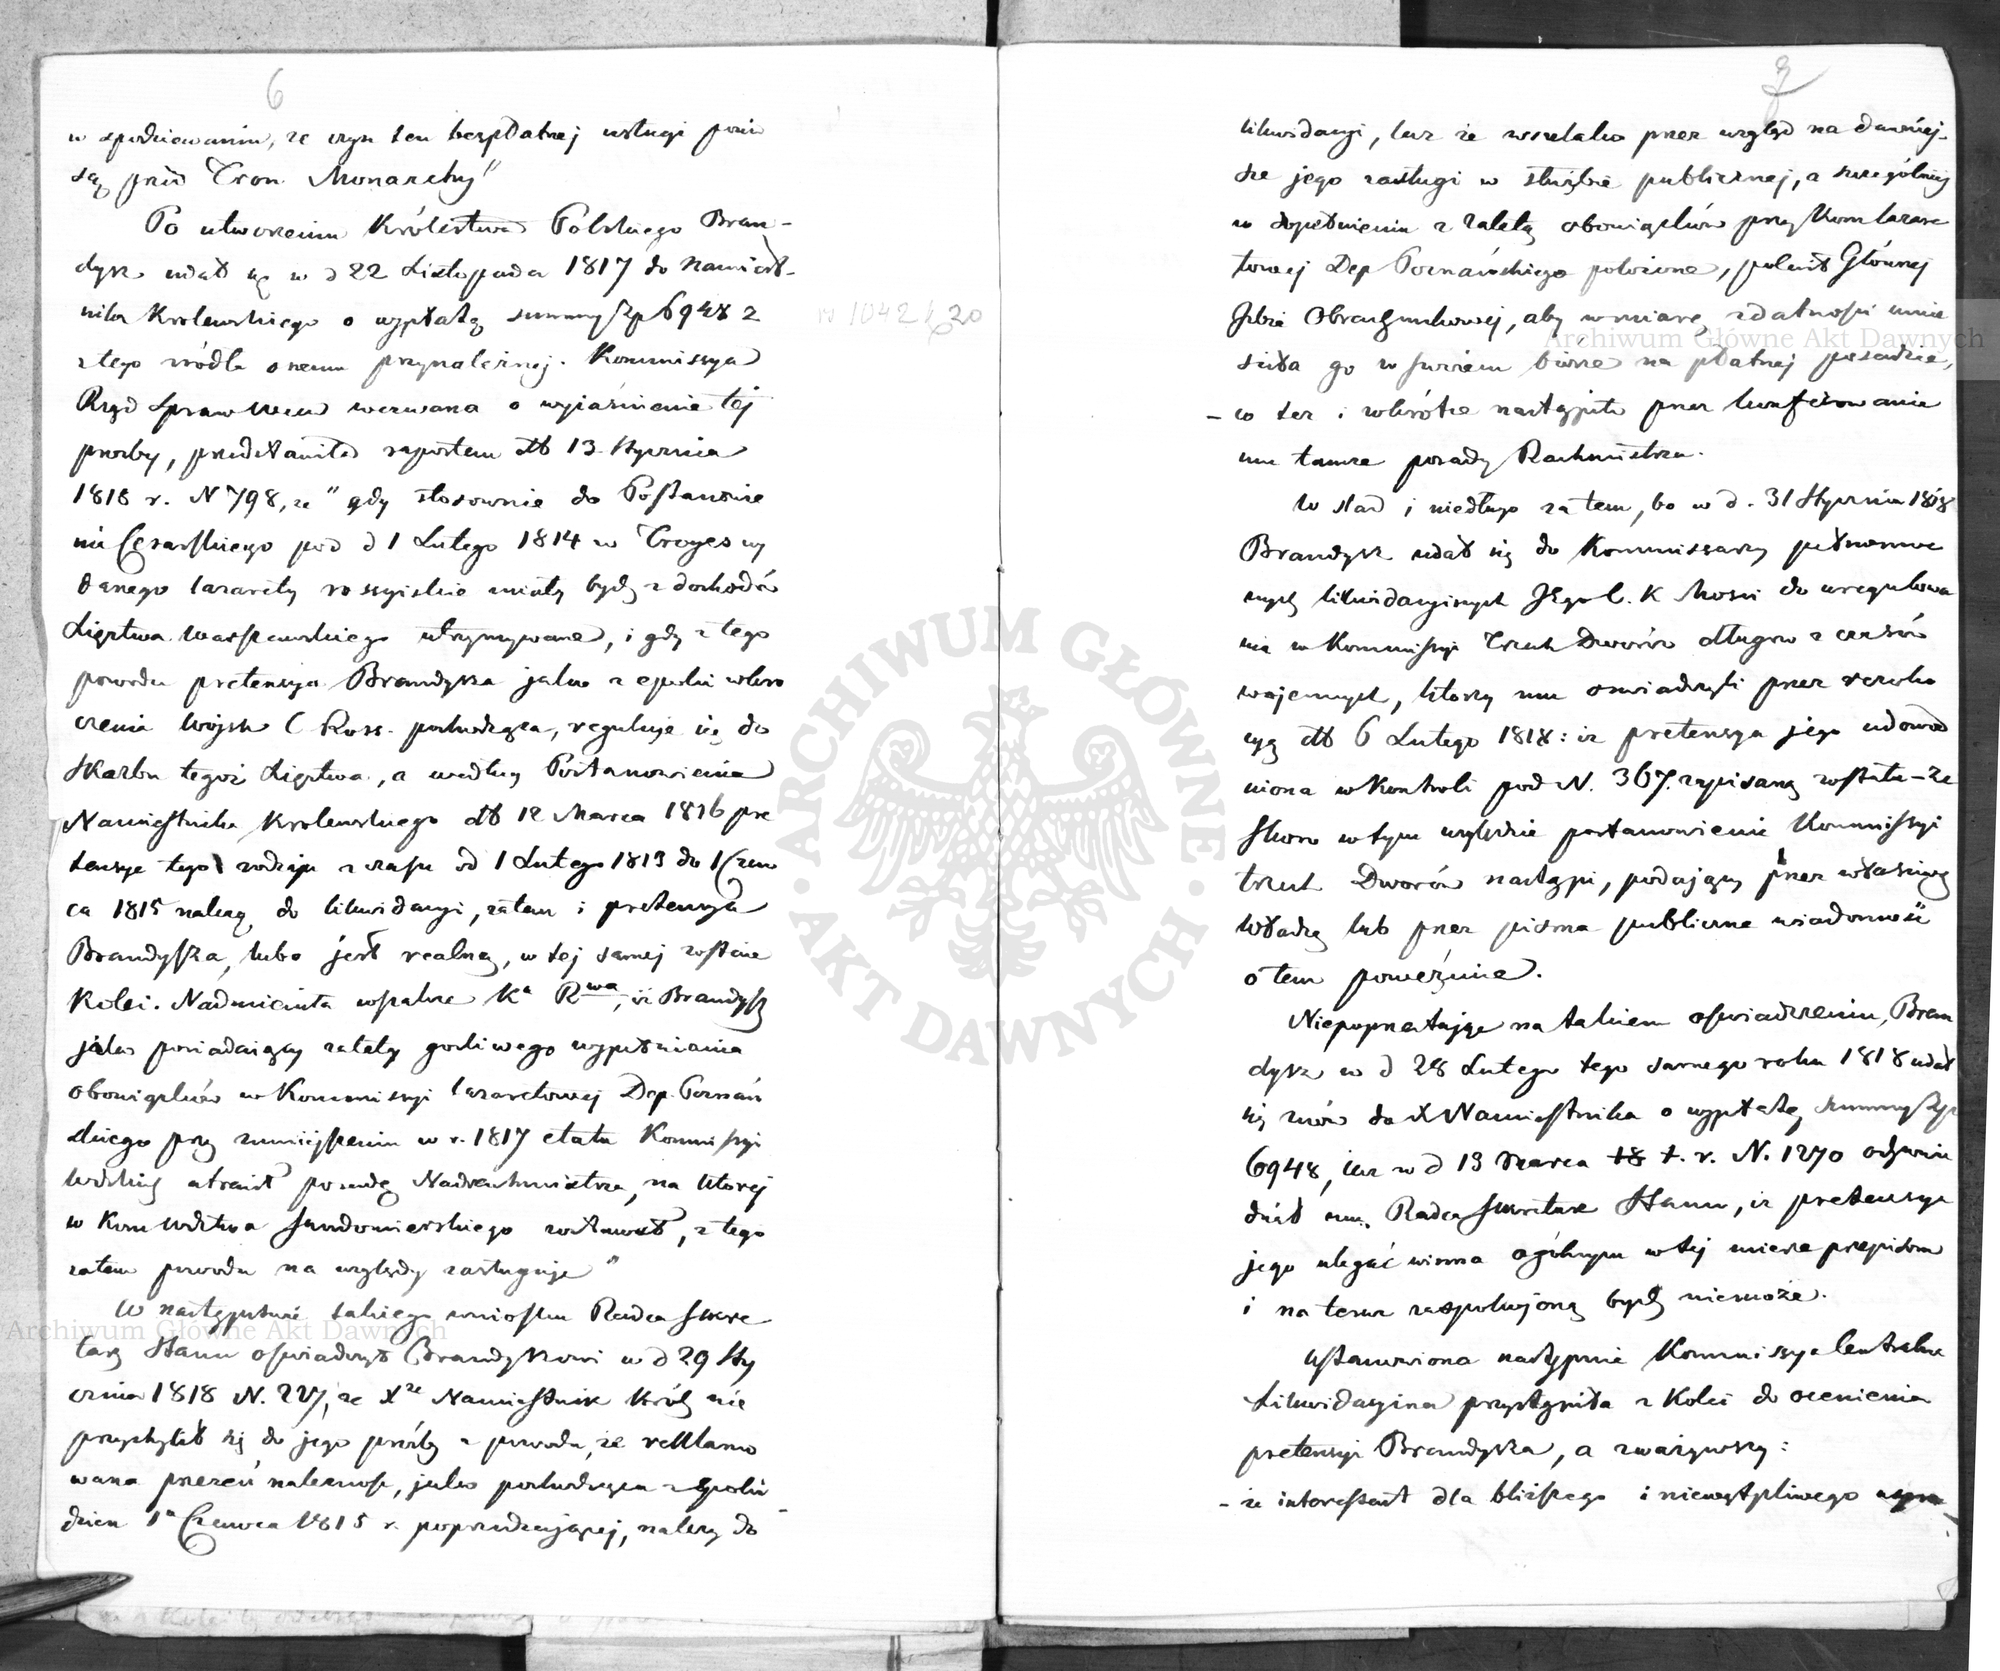 6
w spodziewaniu, że czyn ten bezpłatnej usługi ponio
są przed Tron Monarchy"
Po utworzeniu Królestwa Polskiego Bran-
dysz udał się w d 22 Listopada 1817 do Namiest-
nika Krolewskiego o wypłatę summy Zp 6948 z
tego źródła onemu przynależnej. Kommissya
Rząd Spraw Wewn wezwana o wyiaśnienie tej
prozby, przedstawiła raportem dtt 13 Stycznia
1818 r. N 798, że "gdy stosownie do Postanowie
nia Cesarskiego pod d 1 Lutego 1814 w Troyes wy
danego lazarety rossyiskie miały bydź z dochodów
Xięztwa Warszawskiego utrzymywane, i gdy z tego
powodu pretensya Brandysza jako z epoki wkro
czenia Wojsk C Ross. pochodząca, reguluje się do
Skarbu tegoż Xięztwa, a według Postanowienia
Namiestnika Krolewskiego dtt 12 Marca 1816 pre
tensye tego rodzaju z czasu od 1 Lutego 1813 do 1 Czerw
ca 1815 należą do likwidacyi, zatem i pretensya
Brandysza, lubo jest realną, w tej samej zostaie
Kolei. Nadmieniła wszakże Ka Rwa, iż Brandysz
jako posiadaiący zalety gorliwego wypełniania
obowiązków w Kommissyi Lazaretowej Dep. Poznań
skiego przy zmniejszeniu w r. 1817 etatu Kommissyi
Wdzkiej utracił posadę Nadrachmistrza, na ktorej
w Kom Wdztwa Sandomierskiego zostawał, z tego
zatem powodu na względy zasługuje"
W następstwie takiego wniosku Radca Sekre
tarz Stanu oświadczył Brandyszowi w d 29 Sty
cznia 1818 N. 227, że Xże Namiestnik Król nie
przychylił się do jego prośby z powodu, że reklamo
wana przezeń należność, jako pochodząca z epoki
dzien 1a Czerwca 1815 r. poprzedzającej, należy do
w 1042 20
likwidacyi, lecz że wszelako przez wzgląd na dawniej-
sze jego zasługi w służbie publicznej, a szczególniej
w dopełnieniu z zaletą obowiązków przy Kom lazare
towej Dep Poznańskiego położone, polecił Głównej
Izbie Obrachunkowej, aby w miarę zdatności umie
ściła go w swoiem biórze na płatnej posadzie,
- co też i wkrótce nastąpiło przez konferowanie
mu tamże posady Rachmistrza.
W ślad i niedługo zatem, bo w d. 31 Stycznia 1818
Brandysz udał się do Kommissarzy pełnomoc
nych likwidacyjnych Jego C. K Mości do uregulowa
nia w Kommissyi Trzech Dworów długow z czasów
wojennych, ktorzy mu oswiadczyli przez rezolu
cyą dtt 6 Lutego 1818: iż pretensya jego udowod
niona w Kontroli pod N. 367. zapisaną została - że
skoro w tym względzie postanowienie Kommissyi
trzech Dworów nastąpi, podający przez właściwą
Władzę lub przez pisma publiczne wiadomość
o tem poweźmie.
Niepoprzestając na takiem oświadczeniu, Bran
dysz w d 28 Lutego tego samego roku 1818 udał
się znów do X Namiestnika o wypłatę summy Zp
6948, lecz w d 13 Marca 18 t. r. N. 1270 odpowie
dział mu Radca Sekretarz Stanu, iż pretensya
jego ulegać winna ogólnym w tej mierze przepisom
i na teraz zaspokojoną bydź niemoże.
Ustanowiona następnie Kommissya Centralna
Likwidacyina przystąpiła z Kolei do ocenienia
pretensyi Brandysza, a zważywszy:
- że interessant dla bliższego i niewątpliwego
Archiwum Główne Akt Dawnych
Archiwum Główne Akt Dawnych
ARCHIWUM GŁÓWNE AKT DAWNYCH